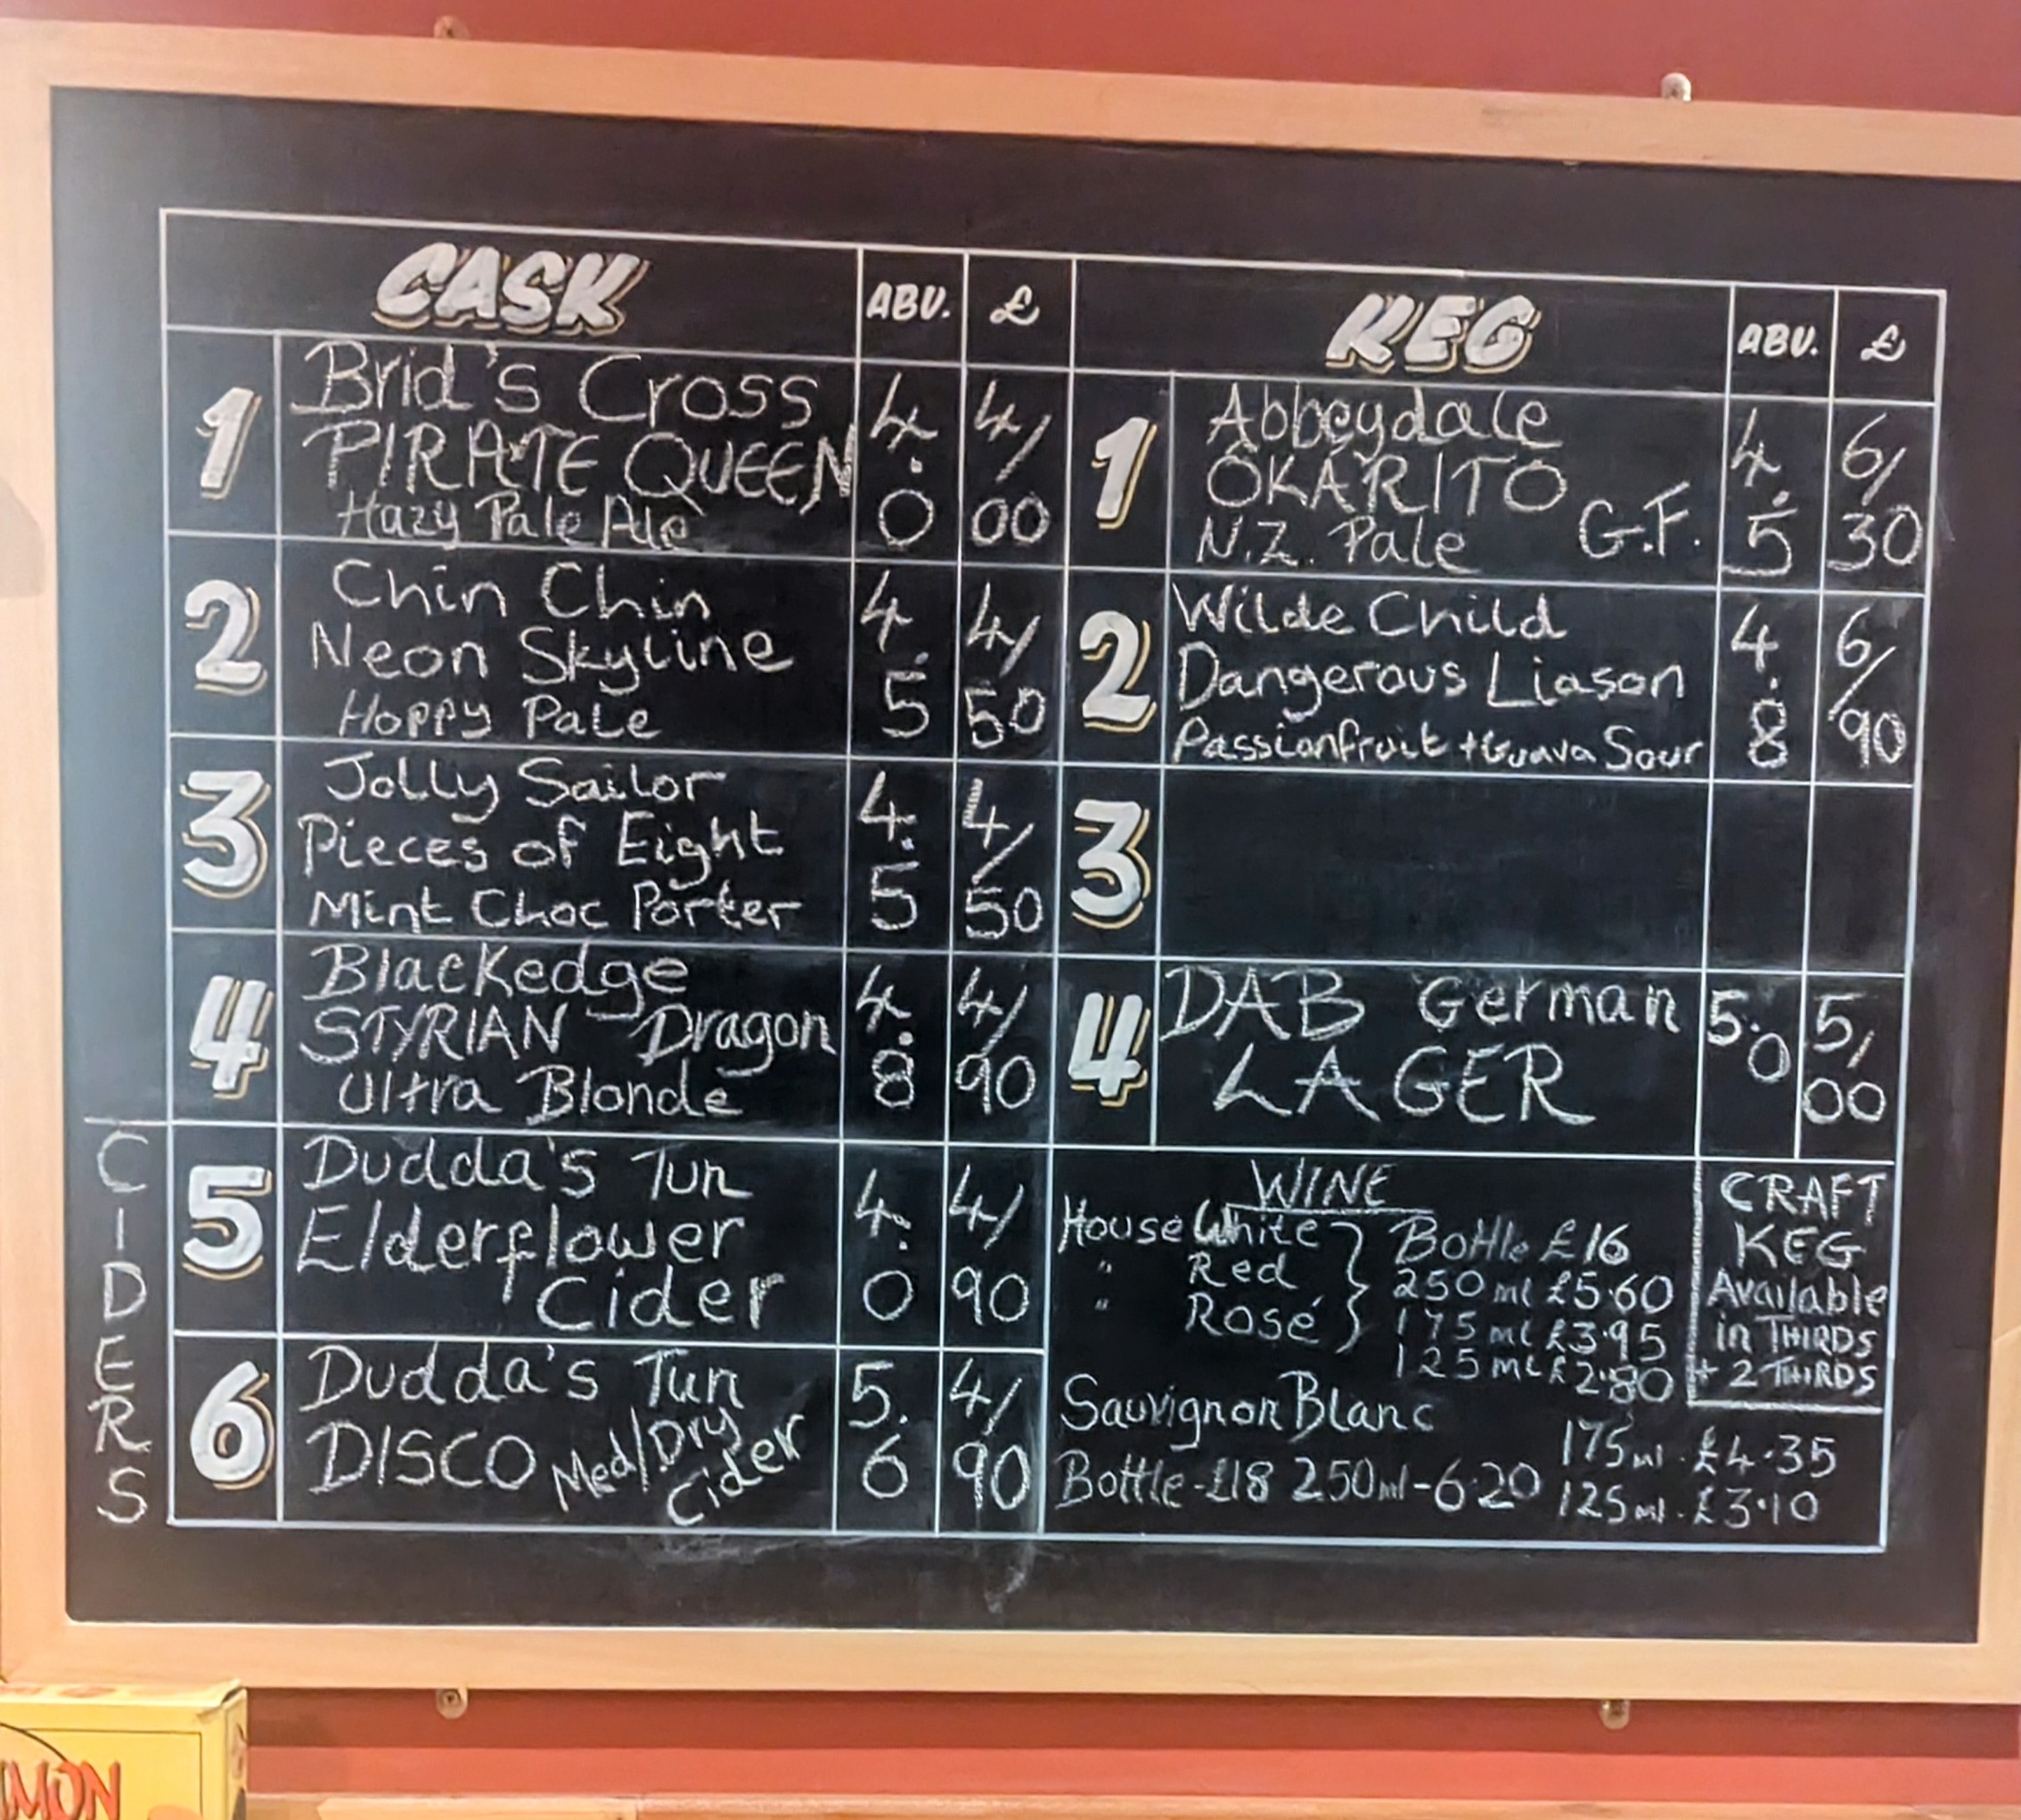 CASK ABV. £
1 Brid's Cross
PIRATE QUEEN
Hazy Pale Ale
4.0 4/00
2 Chin Chin
Neon Skyline
Hoppy Pale
4.5 4/50
3 Jolly Sailor
Pieces of Eight
Mint Choc Porter
4.5 4/50
4 Blackedge
STYRIAN Dragon
Ultra Blonde
4.8 4/90
CIDERS
5 Dudda's Tun
Elderflower
Cider
4.0 4/90
6 Dudda's Tun
DISCO Med/Dry
Cider
5.6 4/90
KEG ABV. £
1 Abbeydale
OKARITO
N.Z. Pale G.F.
4.5 6/30
2 Wilde Child
Dangerous Liason
Passionfruit + Guava Sour
4.8 6/90
3
4 DAB German
LAGER
5.0 5/00
WINE
House White } Bottle £16
" Red } 250 ml £5.60
" Rosé } 175 ml £3.95
125 ml £2.80
Sauvignon Blanc
175ml. £4.35
Bottle - £18 250ml - 6.20
125ml. £3.10
CRAFT
KEG
Available
in THIRDS
+ 2 THIRDS
MON